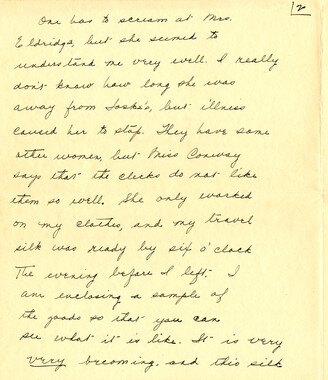 2
One has to scream at Mrs.
Eldridge, but she seemed to
understand me very well. I really
don't know how long she was
away from Joske's, but illness
caused her to stop. They have some
other women, but Miss Conway
says that the clerks do not like
them so well. She only worked
on my clothes, and my travel
silk was ready by six o'clock
the evening before I left. I
am enclosing a sample of
the goods so that you can
see what it is like. It is very
very becoming, and this silk